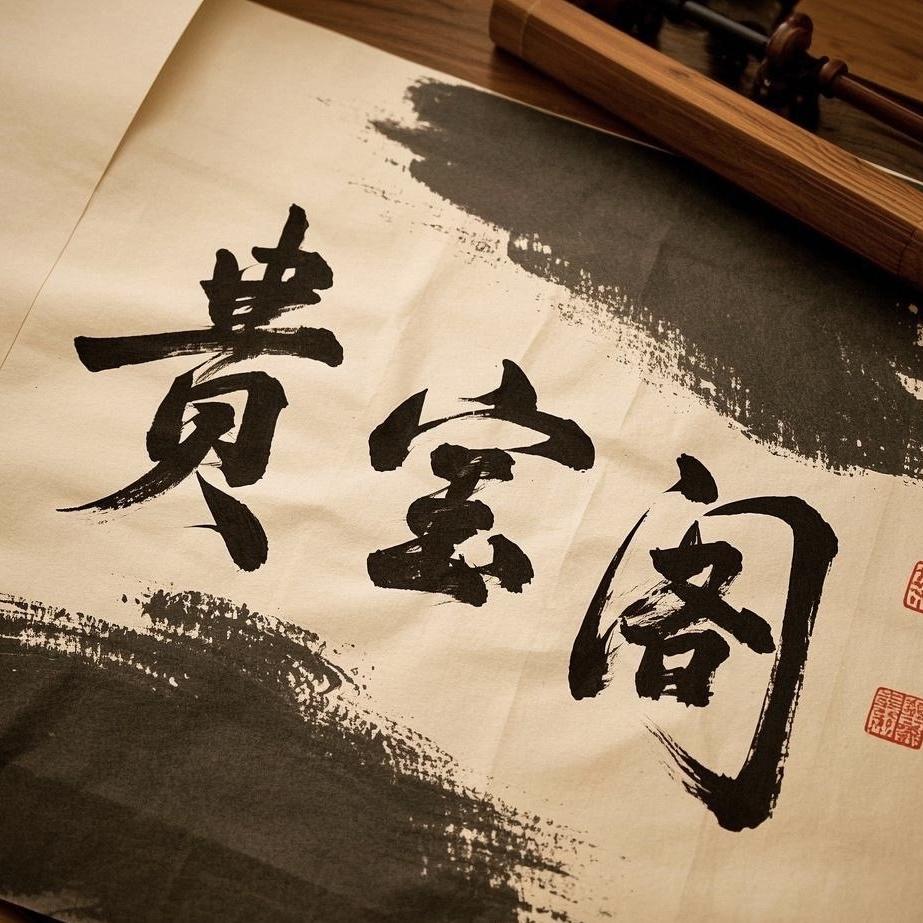 貴宝阁